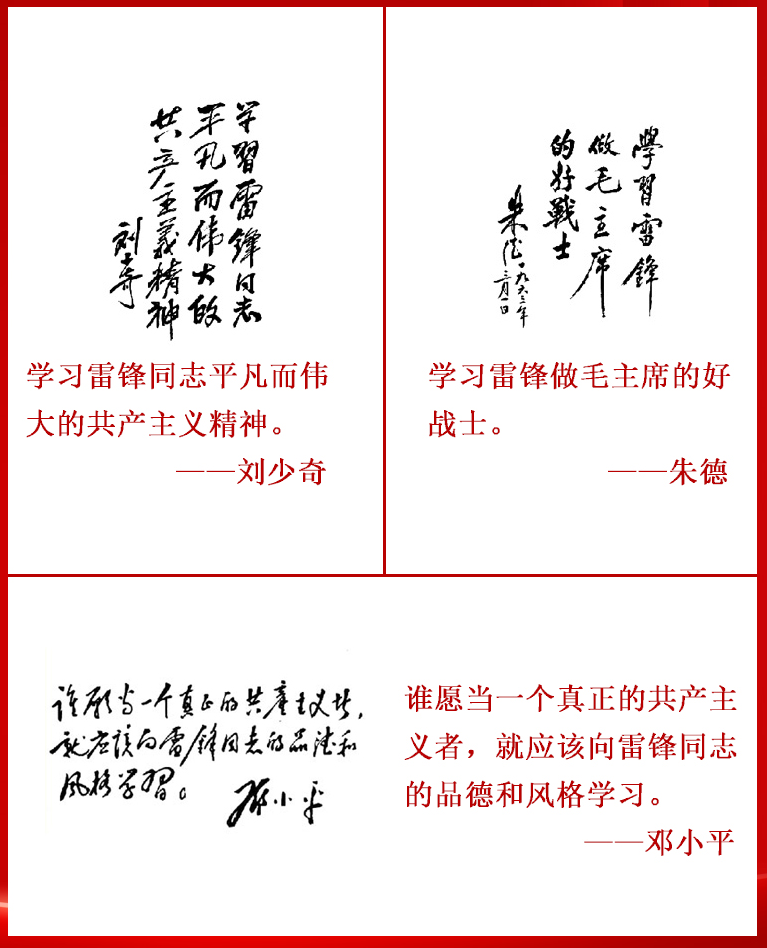 学习雷锋同志
平凡而伟大的
共产主义精神
刘少奇
学习雷锋同志平凡而伟
大的共产主义精神。
——刘少奇
學習雷鋒
做毛主席
的好戰士
朱德
一九六三年
三月一日
学习雷锋做毛主席的好
战士。
——朱德
谁愿当一个真正的共产主义者，
就应该向雷锋同志的品德和
风格学习。
邓小平
谁愿当一个真正的共产主
义者，就应该向雷锋同志
的品德和风格学习。
——邓小平